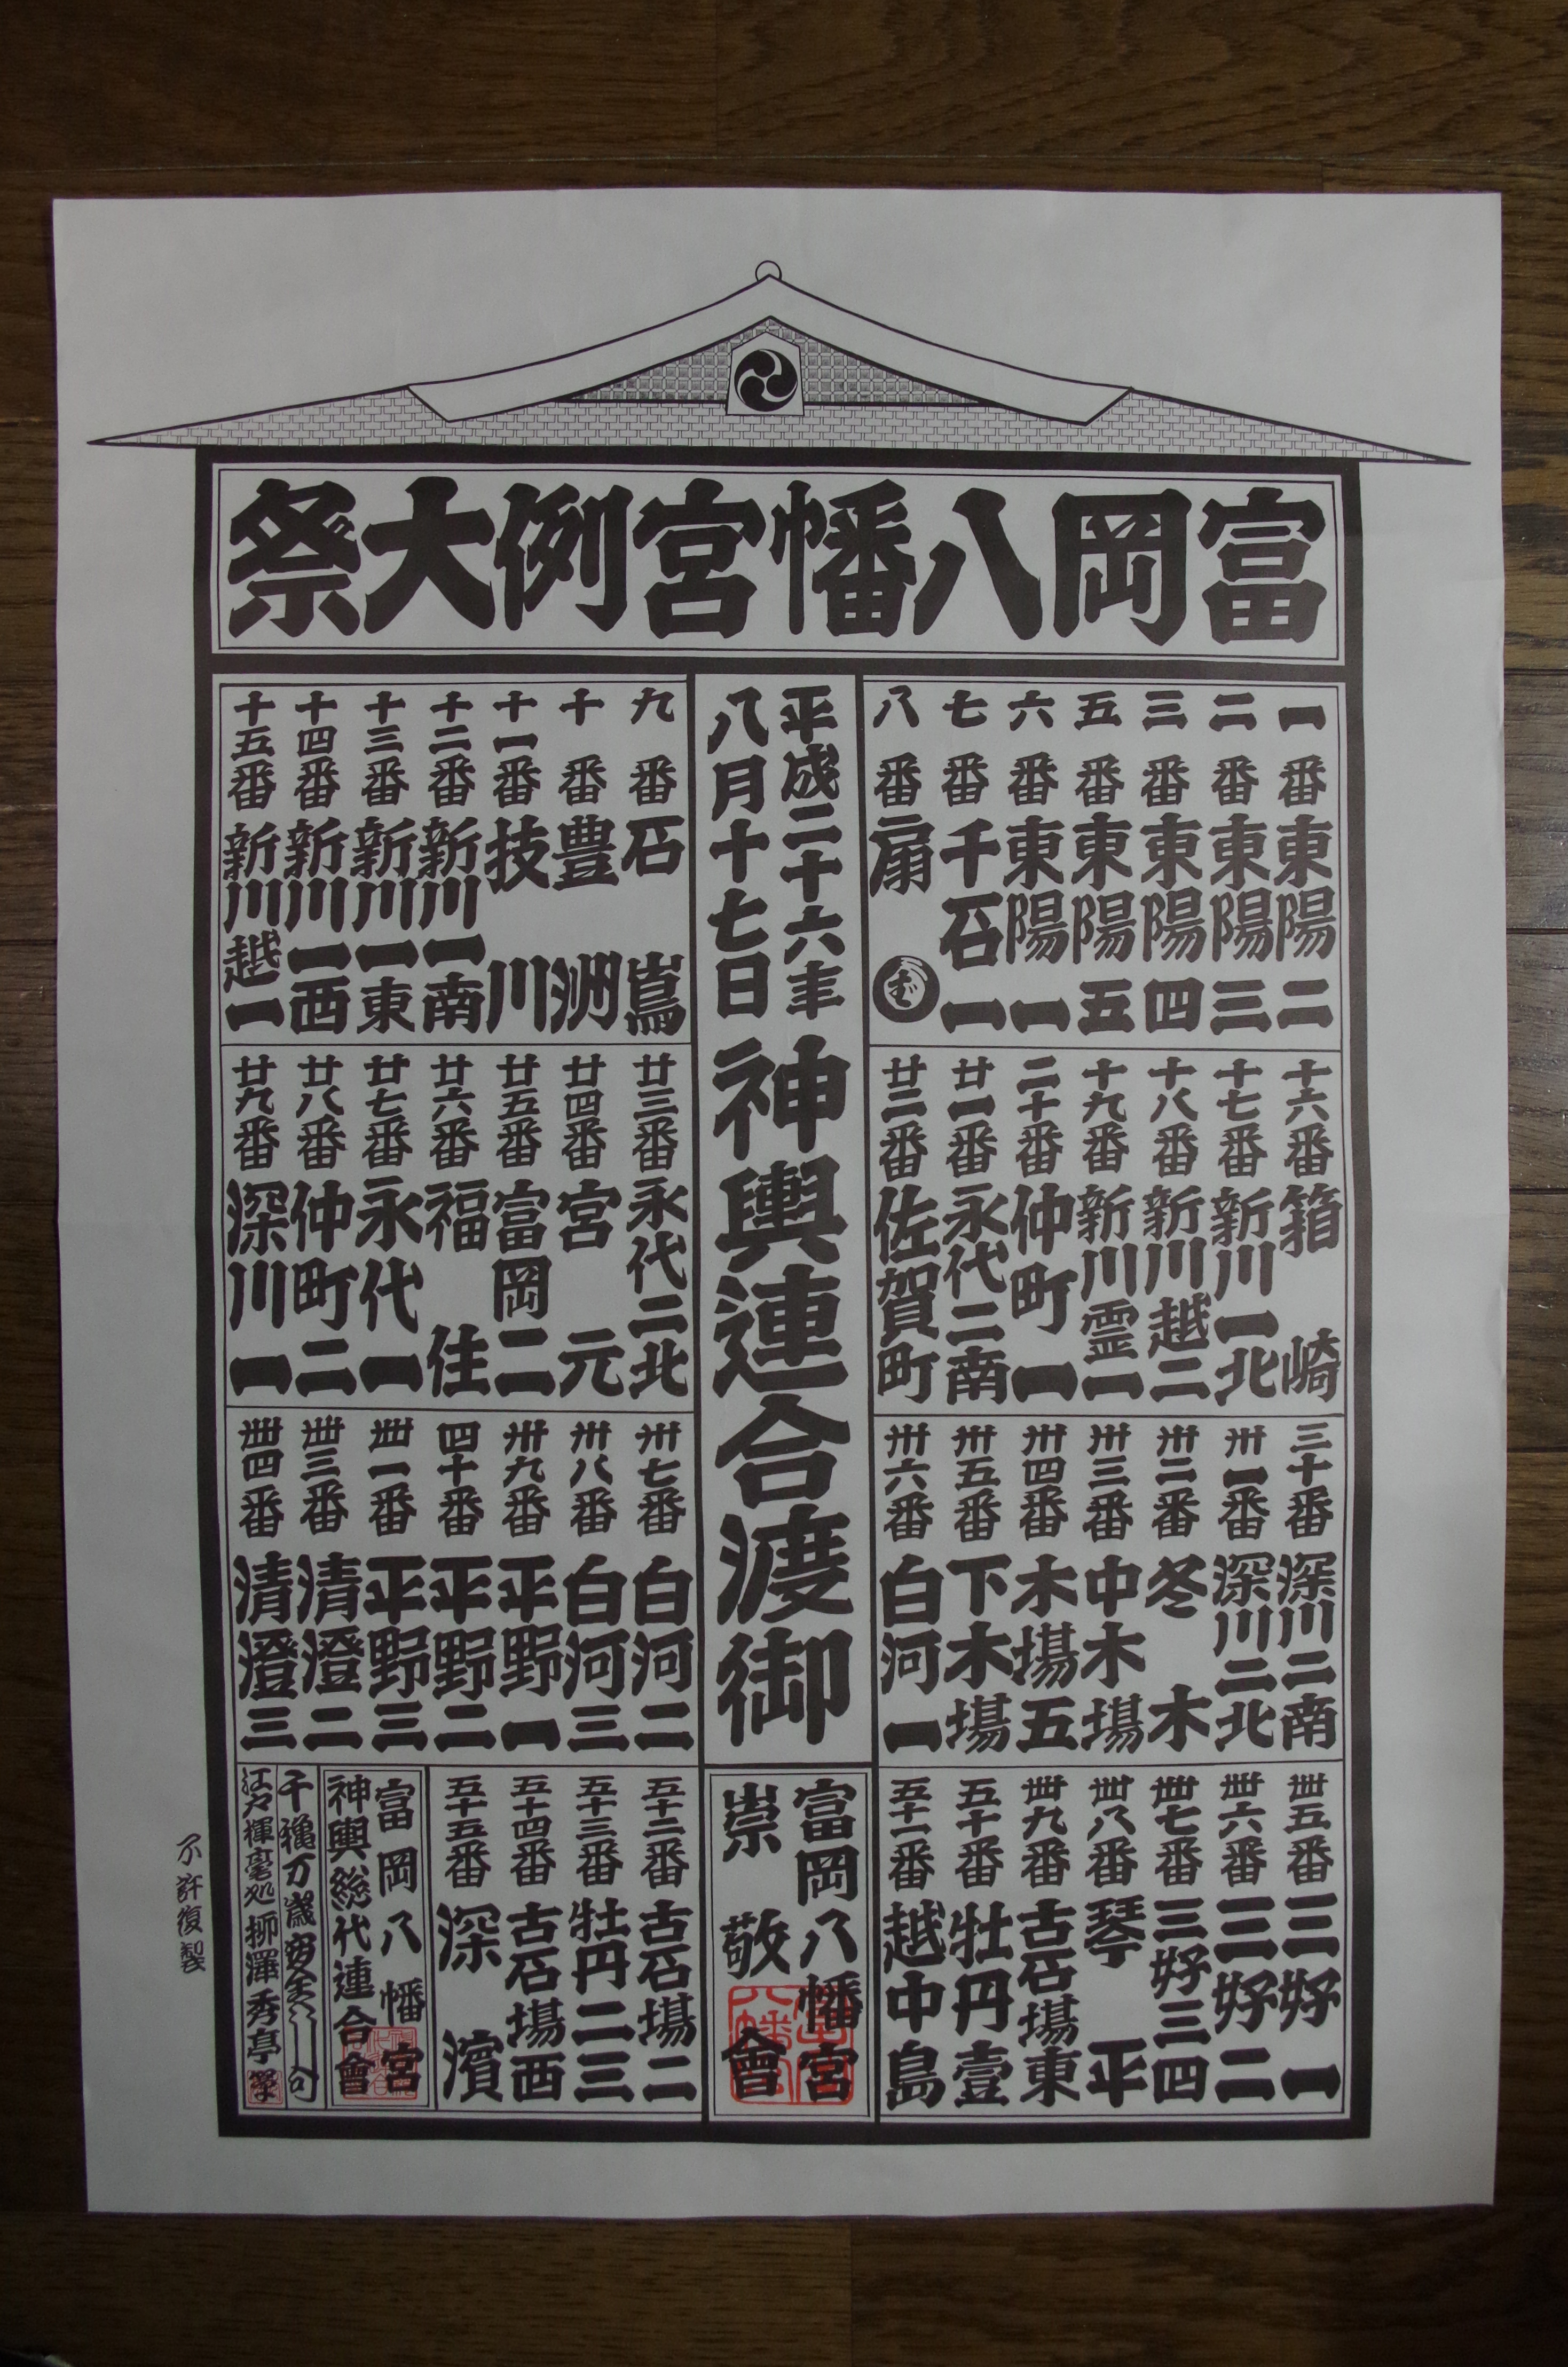 富岡八幡宮例大祭
一番 東陽二
二番 東陽三
三番 東陽四
五番 東陽五
六番 東陽一
七番 千石一
八番 扇
平成二十六年
八月十七日
神輿連合渡御
九番 石嶌
十番 豊洲
十一番 枝川
十二番 新川一南
十三番 新川一東
十四番 新川一西
十五番 新川越一
十六番 箱崎
十七番 新川一北
十八番 新川越二
十九番 新川霊一
二十番 仲町一
廿一番 永代二南
廿二番 佐賀町
廿三番 永代二北
廿四番 宮元
廿五番 富岡二
廿六番 福住
廿七番 永代一
廿八番 仲町二
廿九番 深川一
三十番 深川二南
卅一番 深川二北
卅二番 冬木
卅三番 中木場
卅四番 木場五
卅五番 下木場
卅六番 白河一
卅七番 白河二
卅八番 白河三
卅九番 平野一
四十番 平野二
卌一番 平野三
卌三番 清澄二
卌四番 清澄三
卌五番 三好一
卌六番 三好二
卌七番 三好三四
卌八番 琴平
卌九番 古石場東
五十番 牡丹壹
五十一番 越中島
富岡八幡宮
崇敬會
五十二番 古石場二
五十三番 牡丹二三
五十四番 古石場西
五十五番 深濱
富岡八幡宮
神輿総代連合會
千龝万歳
江戸揮毫処 栁澤秀亭
不許復製